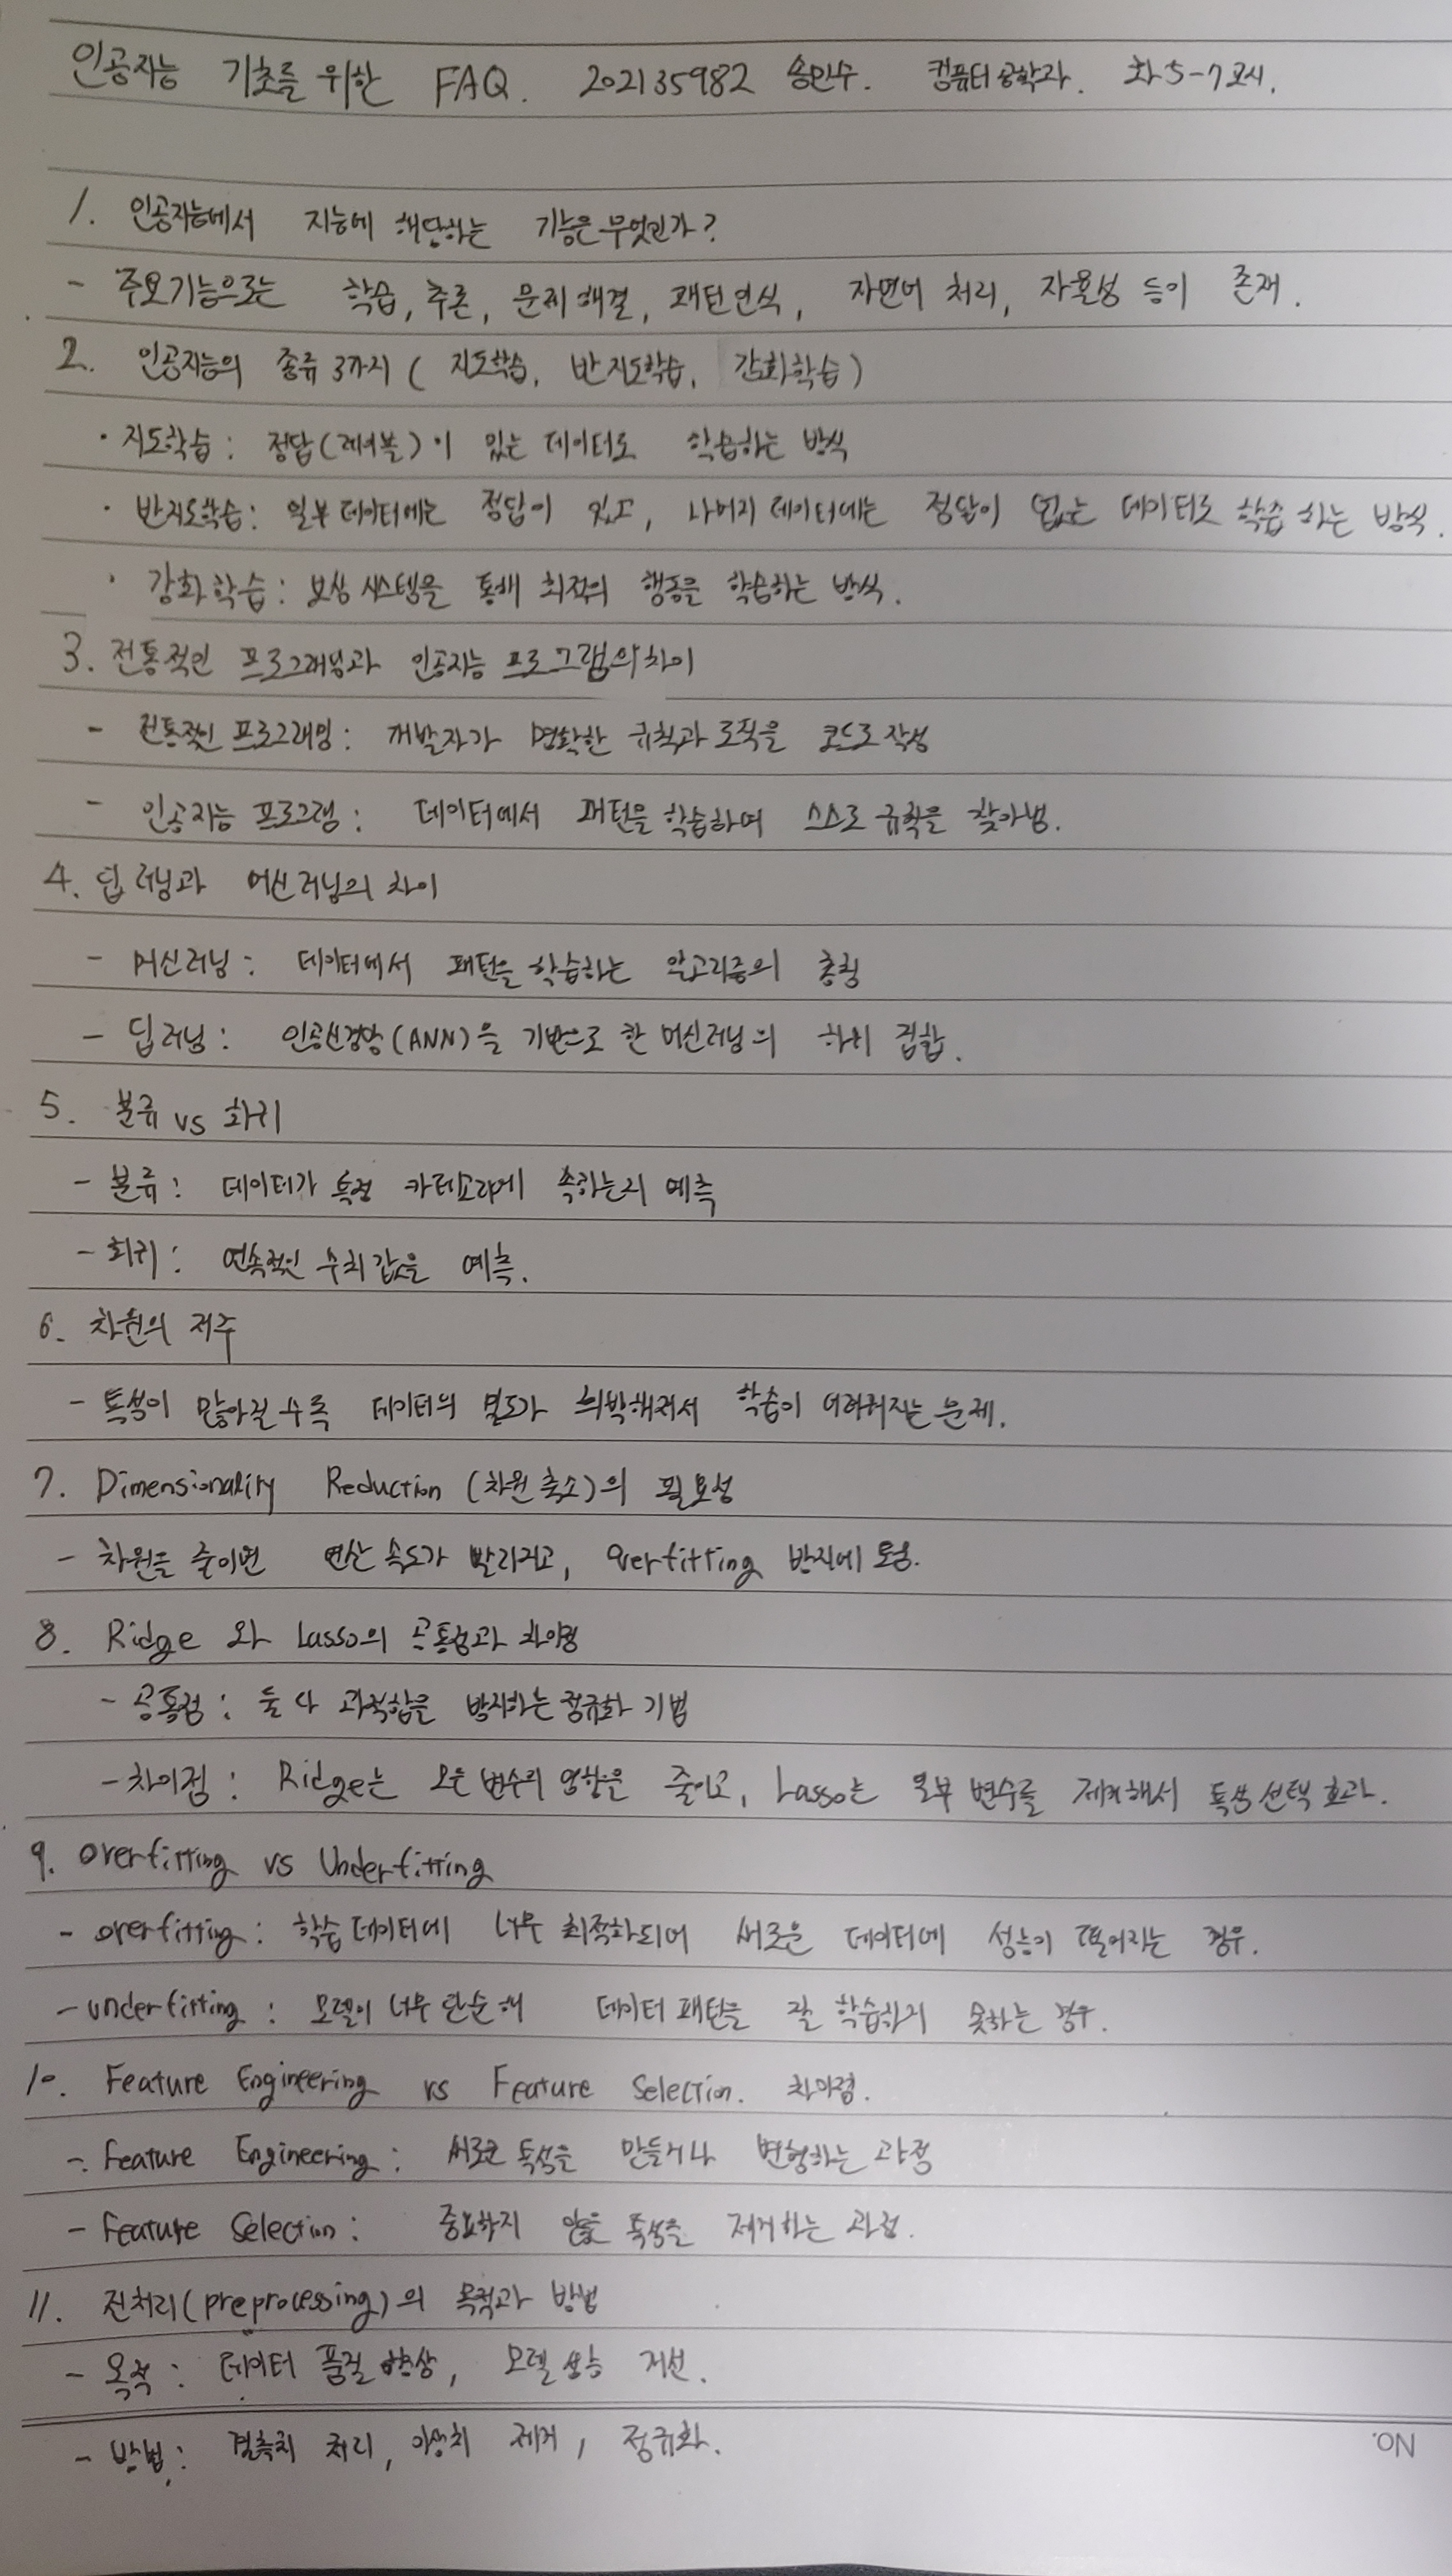 인공지능 기초를 위한 FAQ. 202135982 송민수. 컴퓨터공학과. 화5-7교시.
1. 인공지능에서 지능에 해당하는 기능은 무엇인가?
- 주요기능으로는 학습, 추론, 문제해결, 패턴인식, 자연어 처리, 자율성 등이 존재.
2. 인공지능의 종류 3가지 ( 지도학습, 반지도학습, 강화학습 )
· 지도학습 : 정답(레이블)이 있는 데이터로 학습하는 방식
· 반지도학습 : 일부 데이터에는 정답이 있고, 나머지 데이터에는 정답이 없는 데이터로 학습하는 방식.
· 강화학습 : 보상 시스템을 통해 최적의 행동을 학습하는 방식.
3. 전통적인 프로그래밍과 인공지능 프로그램의 차이
- 전통적인 프로그래밍 : 개발자가 명확한 규칙과 로직을 코드로 작성
- 인공지능 프로그램 : 데이터에서 패턴을 학습하여 스스로 규칙을 찾아냄.
4. 딥러닝과 머신러닝의 차이
- 머신러닝 : 데이터에서 패턴을 학습하는 알고리즘의 총칭
- 딥러닝 : 인공신경망(ANN)을 기반으로 한 머신러닝의 하위 집합.
5. 분류 vs 회귀
- 분류 : 데이터가 특정 카테고리에 속하는지 예측
- 회귀 : 연속적인 수치 값을 예측.
6. 차원의 저주
- 특성이 많아질수록 데이터의 밀도가 희박해져서 학습이 어려워지는 문제.
7. Dimensionality Reduction (차원 축소)의 필요성
- 차원을 줄이면 연산 속도가 빨라지고, overfitting 방지에 도움.
8. Ridge 와 Lasso의 공통점과 차이점
- 공통점 : 둘 다 과적합을 방지하는 정규화 기법
- 차이점 : Ridge는 모든 변수의 영향을 줄이고, Lasso는 일부 변수를 제거해서 특성 선택 효과.
9. Overfitting vs Underfitting
- overfitting : 학습 데이터에 너무 최적화되어 새로운 데이터에 성능이 떨어지는 경우.
- underfitting : 모델이 너무 단순해 데이터 패턴을 잘 학습하지 못하는 경우.
10. Feature Engineering vs Feature Selection. 차이점.
- Feature Engineering : 새로운 특성을 만들거나 변형하는 과정
- Feature Selection : 중요하지 않은 특성을 제거하는 과정.
11. 전처리(preprocessing)의 목적과 방법
- 목적 : 데이터 품질 향상, 모델 성능 개선.
- 방법 : 결측치 처리, 이상치 제거, 정규화.
NO.